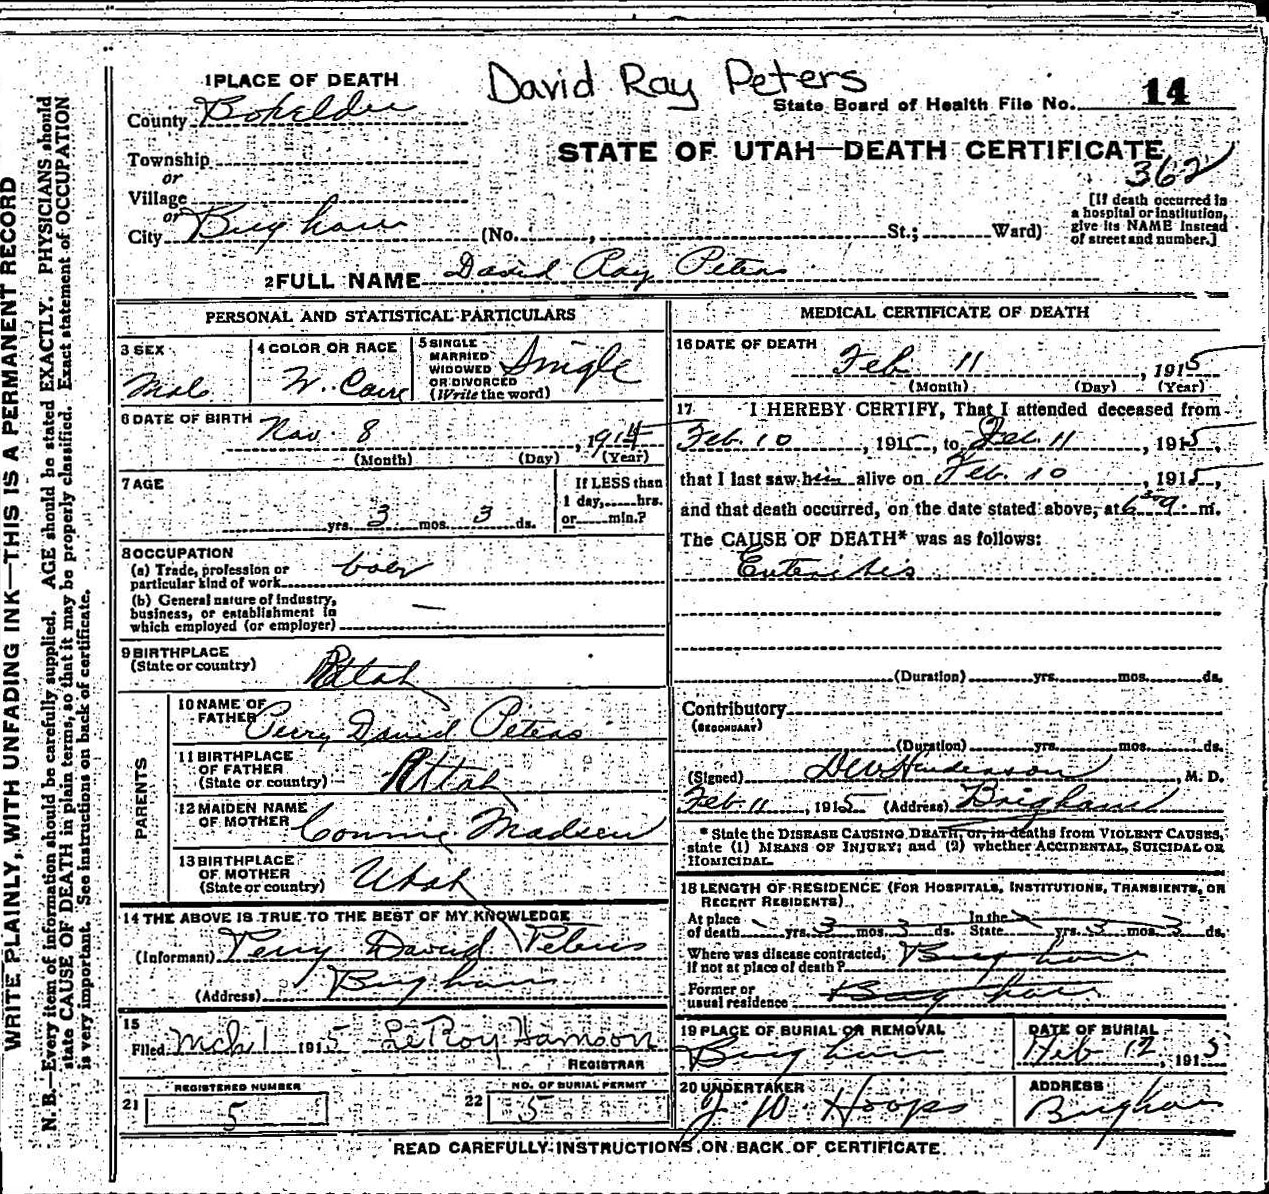 David Ray Peters
1 PLACE OF DEATH
State Board of Health File No. 14
County Boxelder
STATE OF UTAH—DEATH CERTIFICATE
362
Township
or
Village
or
City Brigham (No. , St.; Ward)
[If death occurred in a hospital or institution, give its NAME instead of street and number.]
2 FULL NAME David Ray Peters
PERSONAL AND STATISTICAL PARTICULARS
3 SEX
Male
4 COLOR OR RACE
W.
5 SINGLE MARRIED WIDOWED OR DIVORCED (Write the word)
Single
6 DATE OF BIRTH
Nov. 8, 1914
(Month) (Day) (Year)
7 AGE
yrs. 3 mos. 3 ds.
If LESS than 1 day, hrs. or min.?
8 OCCUPATION
(a) Trade, profession or particular kind of work
(b) General nature of industry, business, or establishment in which employed (or employer) —
9 BIRTHPLACE (State or country)
Utah
PARENTS
10 NAME OF FATHER Perry David Peters
11 BIRTHPLACE OF FATHER (State or country) Utah
12 MAIDEN NAME OF MOTHER Connie Madsen
13 BIRTHPLACE OF MOTHER (State or country) Utah
14 THE ABOVE IS TRUE TO THE BEST OF MY KNOWLEDGE
(Informant) Perry David Peters
(Address) Brigham
15
Filed Mch 1 1915 LeRoy Hamson
REGISTRAR
21 REGISTERED NUMBER 5
22 NO. OF BURIAL PERMIT 5
MEDICAL CERTIFICATE OF DEATH
16 DATE OF DEATH
Feb 11, 1915
(Month) (Day) (Year)
17 I HEREBY CERTIFY, That I attended deceased from
Feb. 10, 1915, to Feb. 11, 1915,
that I last saw him alive on Feb. 10, 1915,
and that death occurred, on the date stated above, at 6 30 a. m.
The CAUSE OF DEATH* was as follows:
Enteritis
(Duration) yrs. mos. ds.
Contributory
(SECONDARY)
(Duration) yrs. mos. ds.
(Signed) Henderson, M. D.
Feb 11, 1915 (Address) Brigham
* State the DISEASE CAUSING DEATH, or, in deaths from VIOLENT CAUSES,
state (1) MEANS OF INJURY; and (2) whether ACCIDENTAL, SUICIDAL OR
HOMICIDAL.
18 LENGTH OF RESIDENCE (FOR HOSPITALS, INSTITUTIONS, TRANSIENTS, OR
RECENT RESIDENTS)
At place of death yrs. 3 mos. 3 ds. In the State yrs. 3 mos. 3 ds.
Where was disease contracted, if not at place of death? Brigham
Former or usual residence Brigham
19 PLACE OF BURIAL OR REMOVAL
Brigham
DATE OF BURIAL
Feb 12, 1915
20 UNDERTAKER
J. W. Hoops
ADDRESS
Brigham
READ CAREFULLY INSTRUCTIONS ON BACK OF CERTIFICATE
WRITE PLAINLY, WITH UNFADING INK—THIS IS A PERMANENT RECORD
N. B.—Every item of information should be carefully supplied. AGE should be stated EXACTLY. PHYSICIANS should
state CAUSE OF DEATH in plain terms, so that it may be properly classified. Exact statement of OCCUPATION
is very important. See instructions on back of certificate.